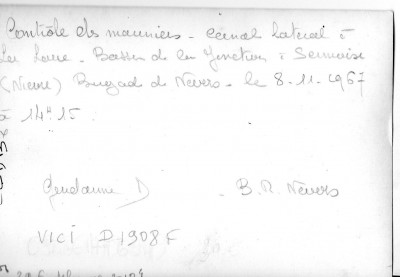 Contrôle des mariniers - Canal latéral à
la Loire - Bassin de la Jonction à Sermoise
(Nièvre) Brigade de Nevers - le 8-11-1967
à 14H15
Gendarme D - B.R. Nevers
VICI D1908F